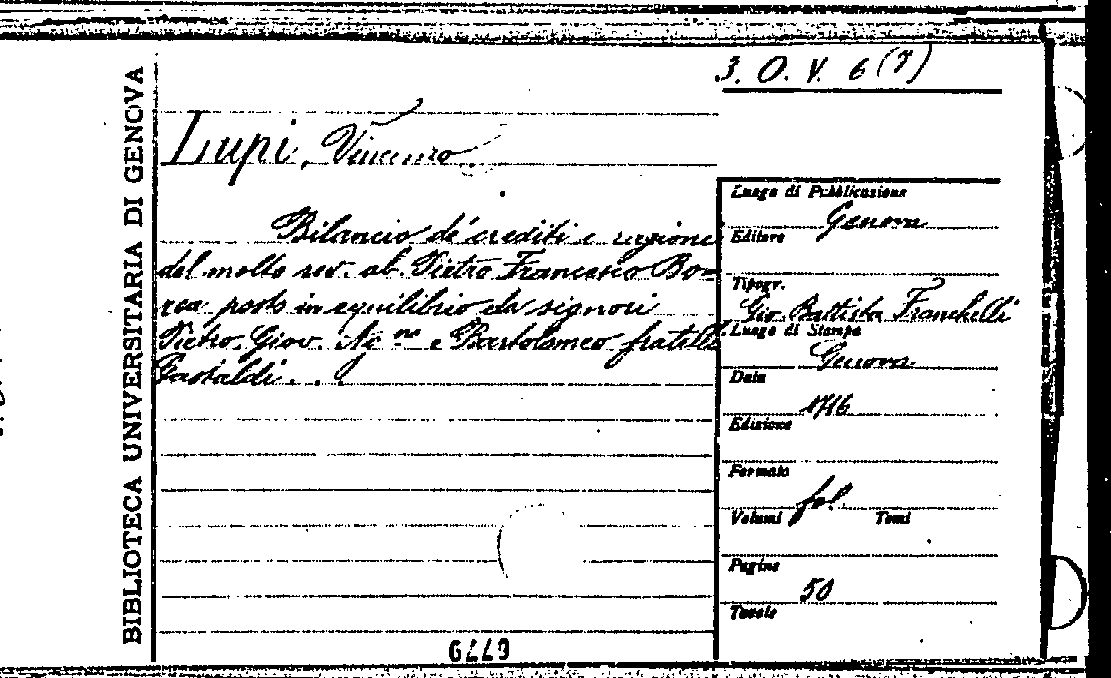 BIBLIOTECA UNIVERSITARIA DI GENOVA
3. O. V. 6 (7)
Lupi, Vincenzo.
Bilancio de' crediti e ragioni
del molto rev. ab. Pietro Francesco Bor=
rea posto in equilibrio da signori
Pietro, Giov. Ag.no e Bartolomeo fratelli
Gastaldi...
Luogo di Pubblicazione
Genova
Editore
Tipogr.
Gio. Battista Franchelli
Luogo di Stampa
Genova
Data
1716
Edizione
Formato
fol.
Volumi Tomi
Pagine
50
Tavole
6779